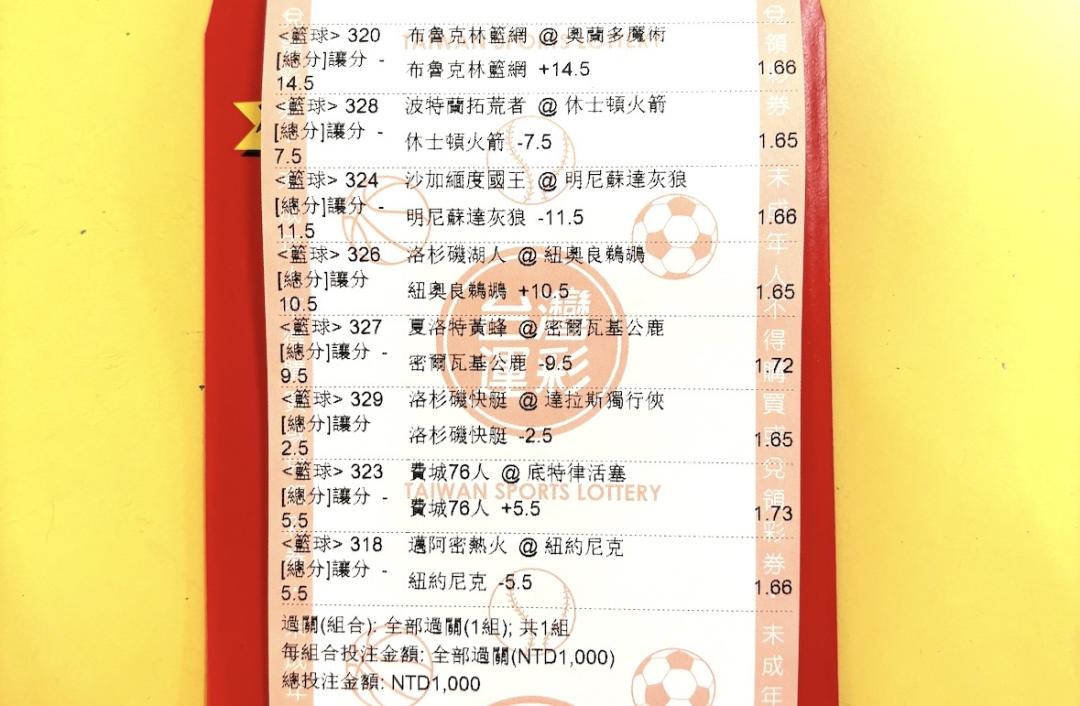 <籃球> 320 布魯克林籃網 @ 奧蘭多魔術
[總分]讓分 - 14.5 布魯克林籃網 +14.5 1.66
<籃球> 328 波特蘭拓荒者 @ 休士頓火箭
[總分]讓分 - 7.5 休士頓火箭 -7.5 1.65
<籃球> 324 沙加緬度國王 @ 明尼蘇達灰狼
[總分]讓分 - 11.5 明尼蘇達灰狼 -11.5 1.66
<籃球> 326 洛杉磯湖人 @ 紐奧良鵜鶘
[總分]讓分 10.5 紐奧良鵜鶘 +10.5 1.65
<籃球> 327 夏洛特黃蜂 @ 密爾瓦基公鹿
[總分]讓分 - 9.5 密爾瓦基公鹿 -9.5 1.72
<籃球> 329 洛杉磯快艇 @ 達拉斯獨行俠
[總分]讓分 2.5 洛杉磯快艇 -2.5 1.65
<籃球> 323 費城76人 @ 底特律活塞
[總分]讓分 - 5.5 費城76人 +5.5 1.73
<籃球> 318 邁阿密熱火 @ 紐約尼克
[總分]讓分 - 5.5 紐約尼克 -5.5 1.66
過關(組合): 全部過關(1組); 共1組
每組合投注金額: 全部過關(NTD1,000)
總投注金額: NTD1,000
TAIWAN SPORTS LOTTERY
台灣運彩
TAIWAN SPORTS LOTTERY
兌領彩券 未成年人不得購買或兌領彩券 未成年